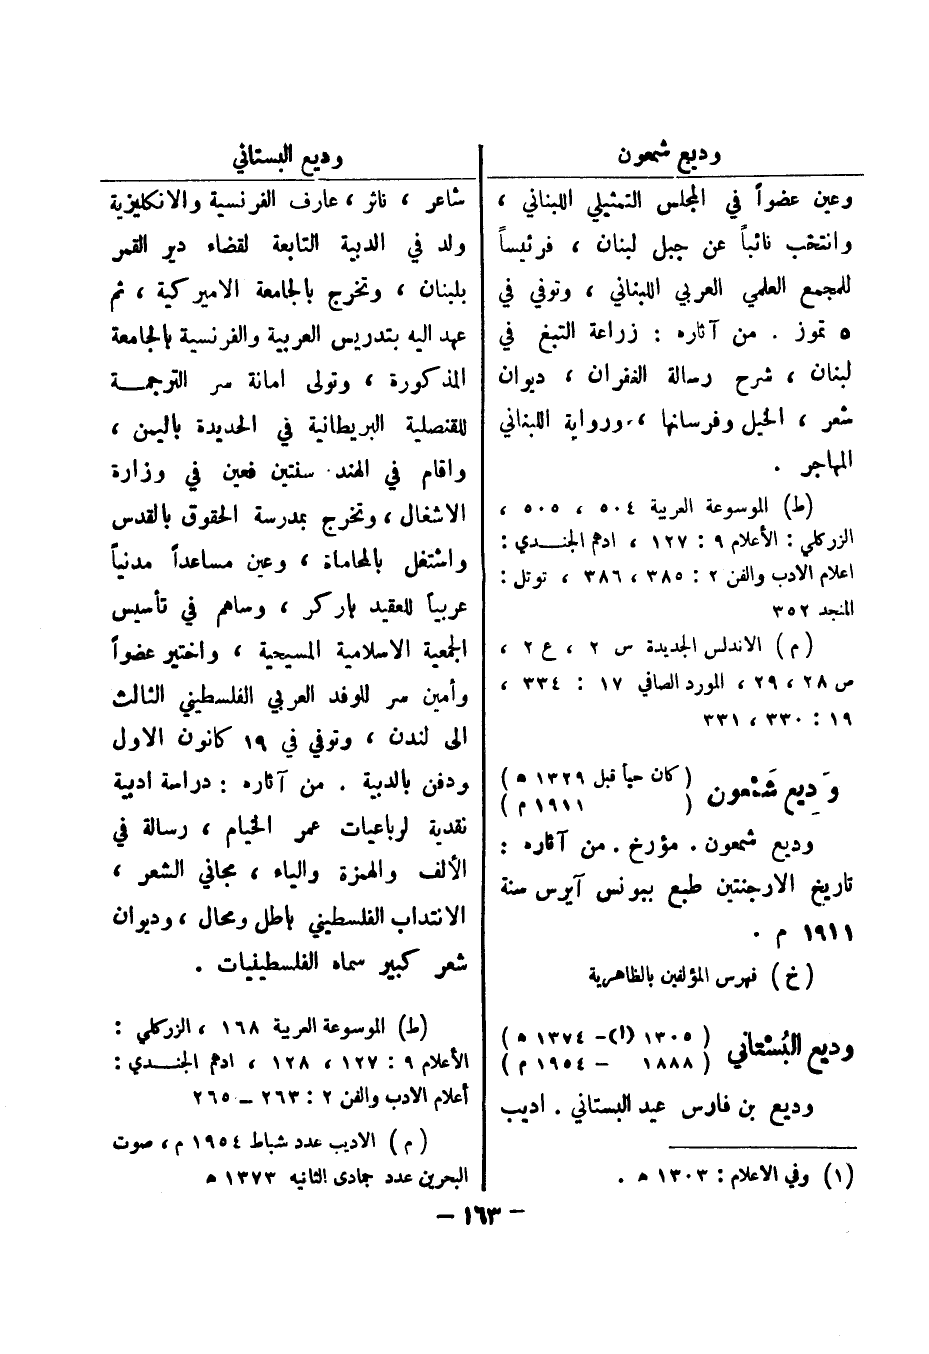 وديع شمعون
وعين عضواً في المجلس التمثيلي اللبناني ،
وانتخب نائباً عن جبل لبنان ، فرئيساً
للمجمع العلمي العربي اللبناني ، وتوفي في
٥ تموز . من آثاره : زراعة التبغ في
لبنان ، شرح رسالة الغفران ، ديوان
شعر ، الخيل وفرسانها ، ورواية اللبناني
المهاجر .
(ط) الموسوعة العربية ٥٠٤ ، ٥٠٥ ،
الزركلي : الأعلام ٩ : ١٢٧ ، ادهم الجنـــدي :
اعلام الادب والفن ٢ : ٣٨٥ ، ٣٨٦ ، توتل :
المنجد ٣٥٢
(م) الاندلس الجديدة س ٢ ، ع ٢ ،
ص ٢٨ ، ٢٩ ، المورد الصافي ١٧ : ٣٣٤ ،
١٩ : ٣٣٠ ، ٣٣١
وَديع شَمْعون ( كان حياً قبل ١٣٢٩ ه )
( ١٩١١ م )
وديع شمعون . مؤرخ . من آثاره :
تاريخ الارجنتين طبع ببونس آيرس سنة
١٩١١ م .
(خ) فهرس المؤلفين بالظاهرية
وديع البُسْتاني ( ١٣٠٥ (١) – ١٣٧٤ ه )
( ١٨٨٨ – ١٩٥٤ م )
وديع بن فارس عيد البستاني . اديب
(١) وفي الاعلام : ١٣٠٣ ه .
وديع البستاني
شاعر ، ناثر ، عارف الفرنسية والانكليزية
ولد في الدبية التابعة لقضاء دير القمر
بلبنان ، وتخرج بالجامعة الاميركية ، ثم
عهد اليه بتدريس العربية والفرنسية بالجامعة
المذكورة ، وتولى امانة سر الترجمـــة
للقنصلية البريطانية في الحديدة باليمن ،
واقام في الهند سنتين فعين في وزارة
الاشغال ، وتخرج بمدرسة الحقوق بالقدس
واشتغل بالمحاماة ، وعين مساعداً مدنياً
عربياً للعقيد باركر ، وساهم في تأسيس
الجمعية الاسلامية المسيحية ، واختير عضواً
وأمين سر للوفد العربي الفلسطيني الثالث
الى لندن ، وتوفي في ١٩ كانون الاول
ودفن بالدبية . من آثاره : دراسة ادبية
نقدية لرباعيات عمر الخيام ، رسالة في
الألف والهمزة والياء ، مجاني الشعر ،
الانتداب الفلسطيني باطل ومحال ، وديوان
شعر كبير سماه الفلسطينيات .
(ط) الموسوعة العربية ١٦٨ ، الزركلي :
الأعلام ٩ : ١٢٧ ، ١٢٨ ، ادهم الجنـــدي :
أعلام الادب والفن ٢ : ٢٦٣ – ٢٦٥
(م) الاديب عدد شباط ١٩٥٤ م ، صوت
البحرين عدد جمادى الثانيه ١٣٧٣ ه
– ١٦٣ –